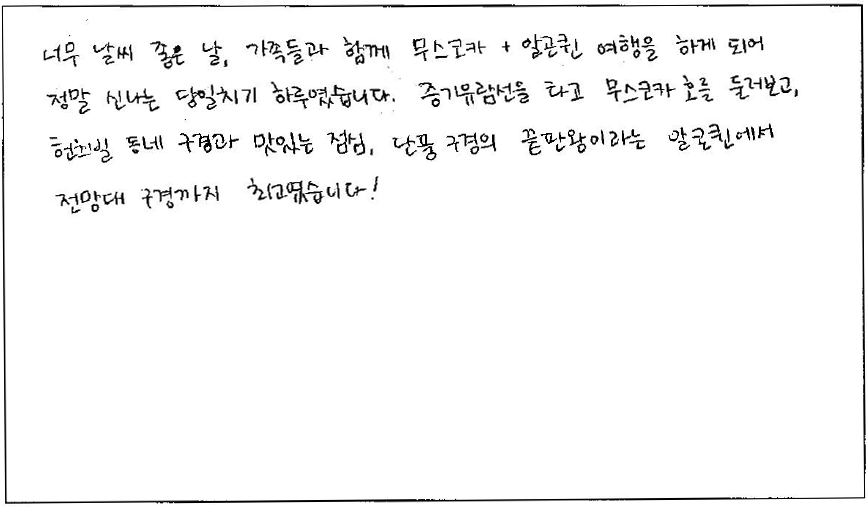 너무 날씨 좋은 날, 가족들과 함께 무스코카 + 알곤퀸 여행을 하게 되어
정말 신나는 당일치기 하루였습니다. 증기유람선을 타고 무스코카 호를 둘러보고,
헌츠빌 동네 구경과 맛있는 점심, 단풍 구경의 끝판왕이라는 알곤퀸에서
전망대 구경까지 최고였습니다!